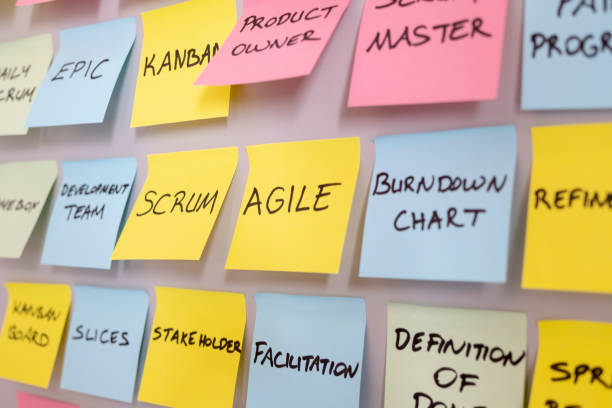 DAILY
SCRUM
EPIC
KANBAN
PRODUCT
OWNER
SCRUM
MASTER
PAIR
PROGR
MEBOX
DEVELOPMENT
TEAM
SCRUM
AGILE
BURNDOWN
CHART
REFINE
KANBAN
BOARD
SLICES
STAKEHOLDER
FACILITATION
DEFINITION
OF
DONE
SPR